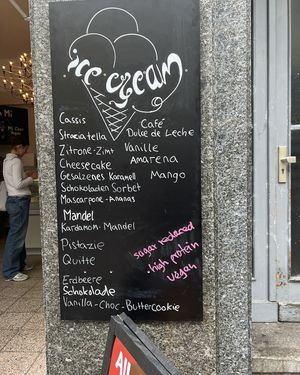 ice cream
Cassis
Café
Stracciatella
Dulce de Leche
Zitrone-Zimt
Vanille
Cheesecake
Amarena
Gesalzenes Karamell
Mango
Schokoladen Sorbet
Mascarpone-Ananas
Mandel
Kardamom-Mandel
Pistazie
Quitte
sugar reduced
high protein
vegan
Erdbeere
Schokolade
Vanilla-Choc-Buttercookie
All